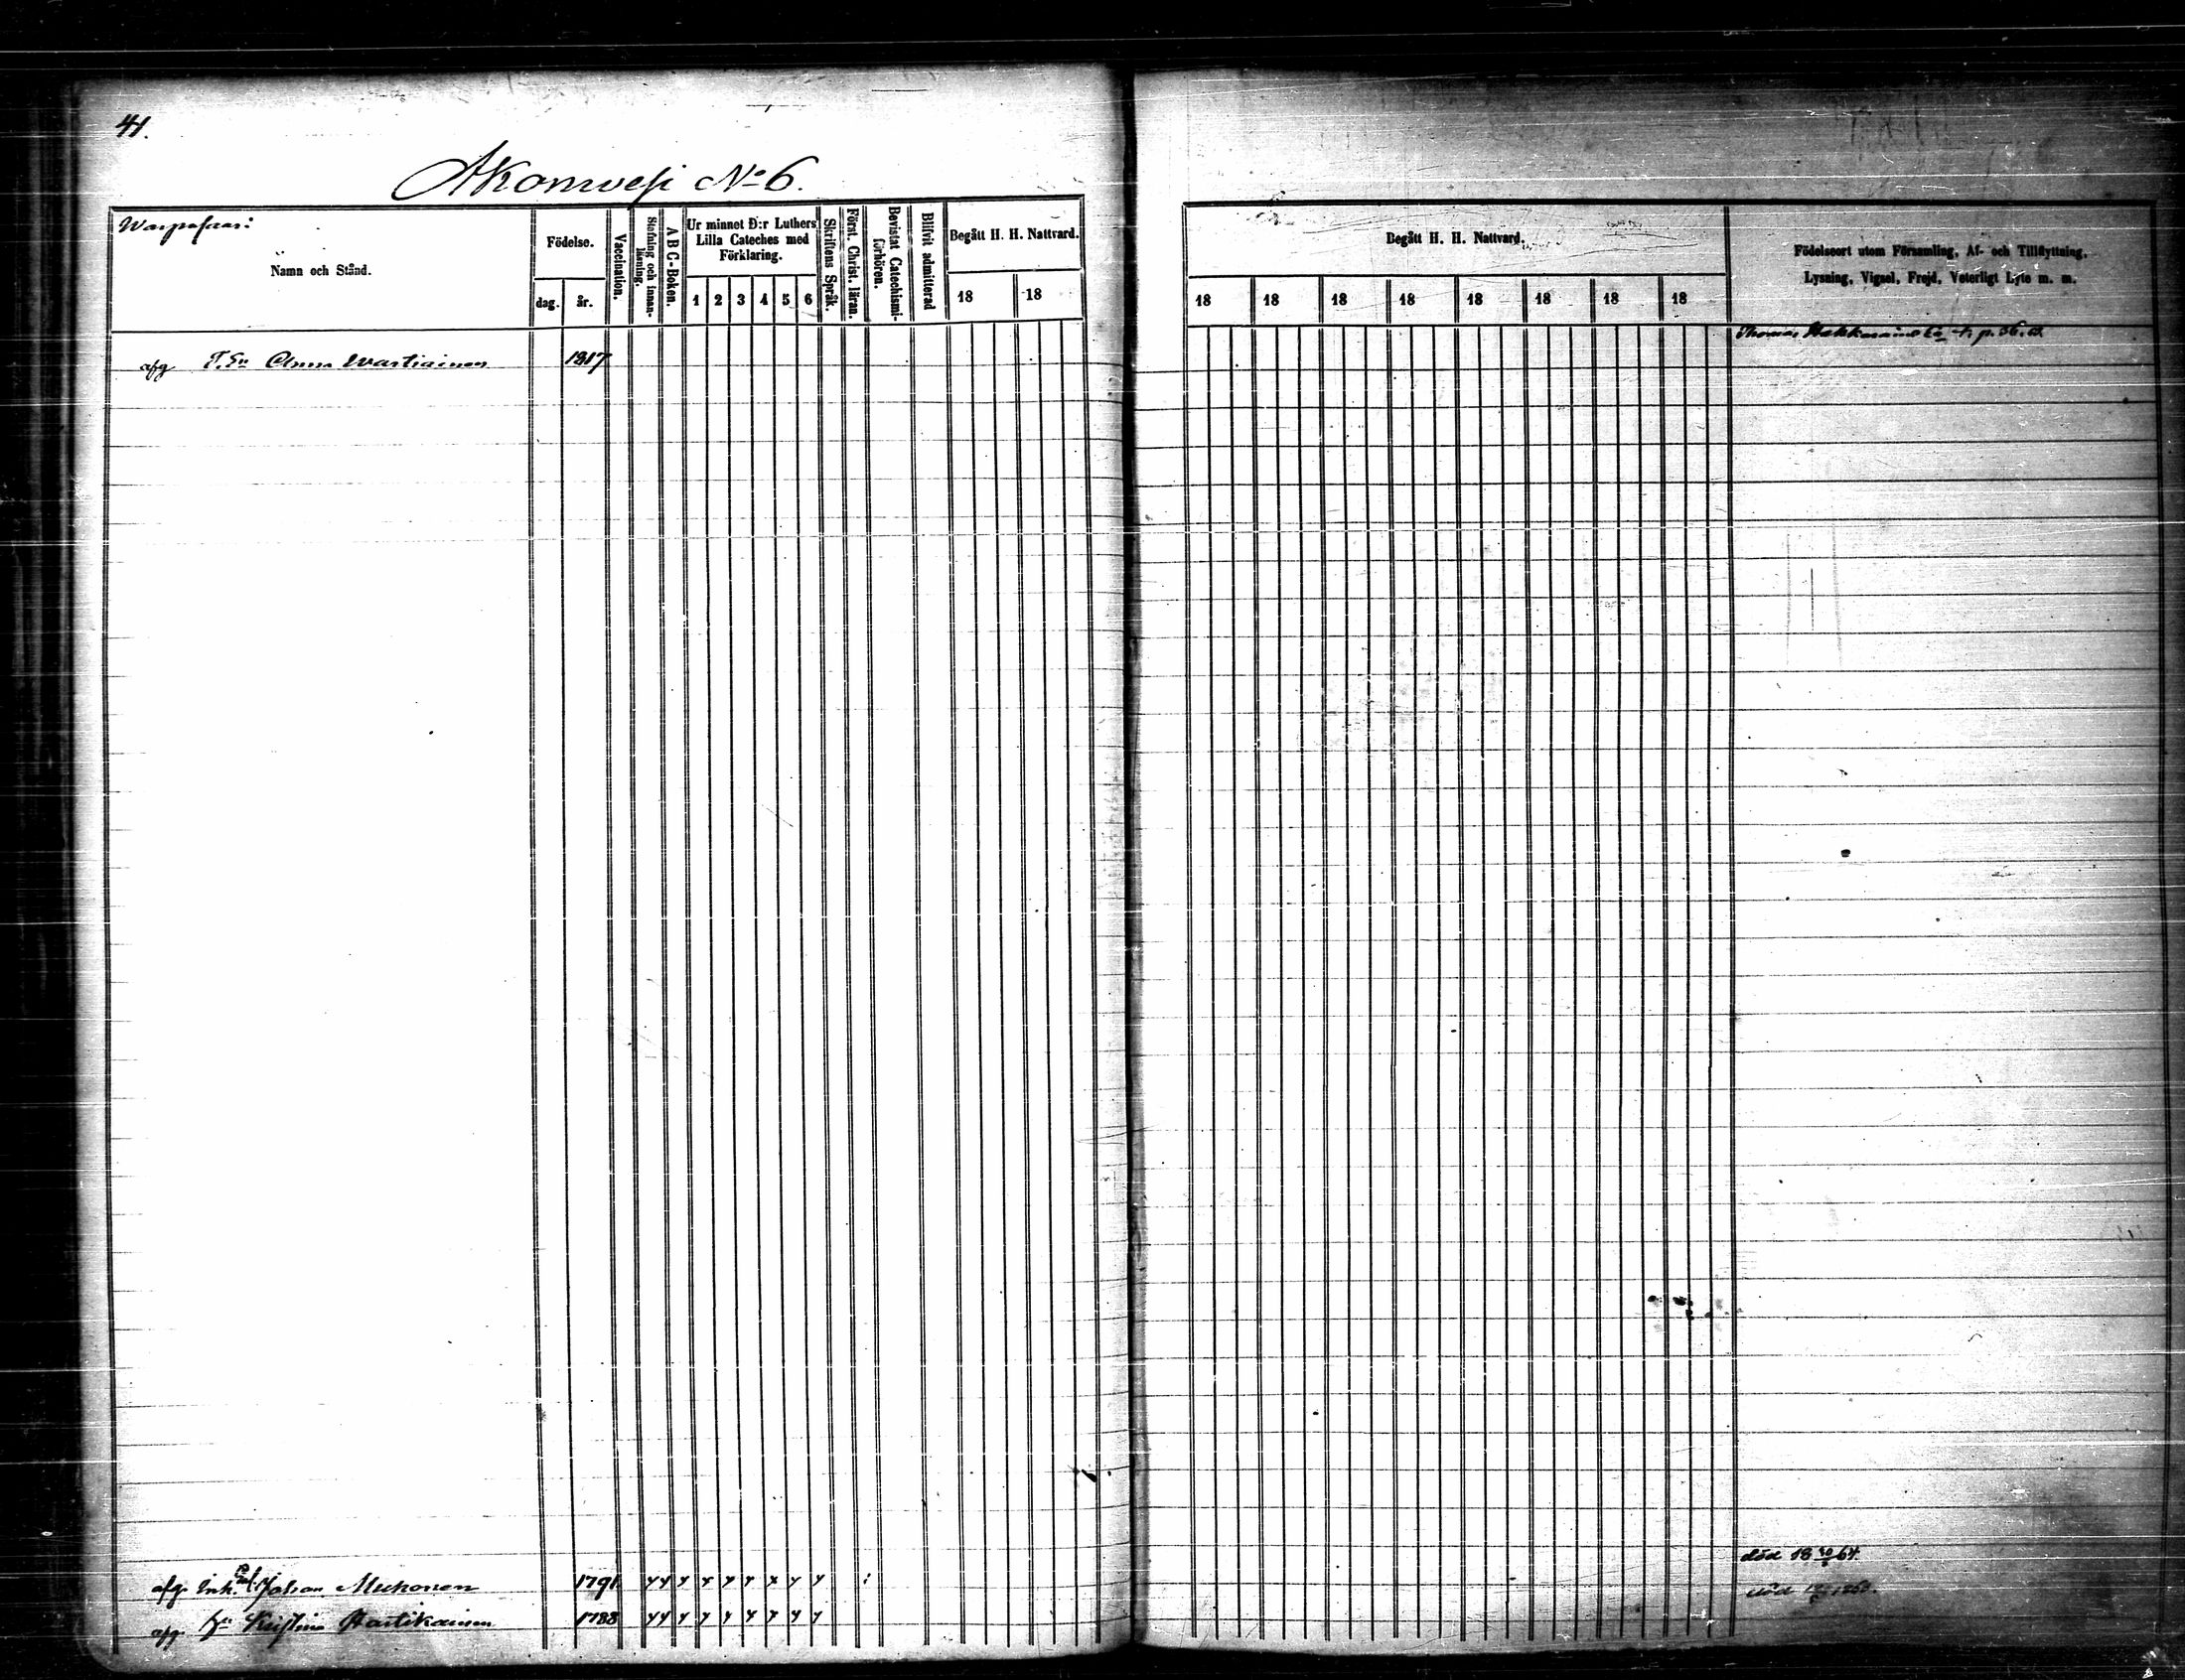 41.
Akonvesi No 6.
Warpasaari
Namn och Stånd.
Födelse.
dag. år.
Vaccination.
Stafning och innanläsning.
A B C-Boken.
Ur minnet D:r Luthers Lilla Cateches med Förklaring.
1 2 3 4 5 6
Skriftens Språk.
Först. Christ. läran.
Bevistat Catechismiförhören.
Blifvit admitterad
Begått H. H. Nattvard.
18 18
Begått H. H. Nattvard.
18 18 18 18 18 18 18 18
Födelseort utom Församling, Af- och Tillflyttning,
Lysning, Vigsel, Frejd, Veterligt Lyte m. m.
Thomas p. 36.
afg Anna Wartiainen 1817
död 18 64.
afg. Inh. Johan Muhonen 1791
död
afg. hu Kristina Hartikainen 1788